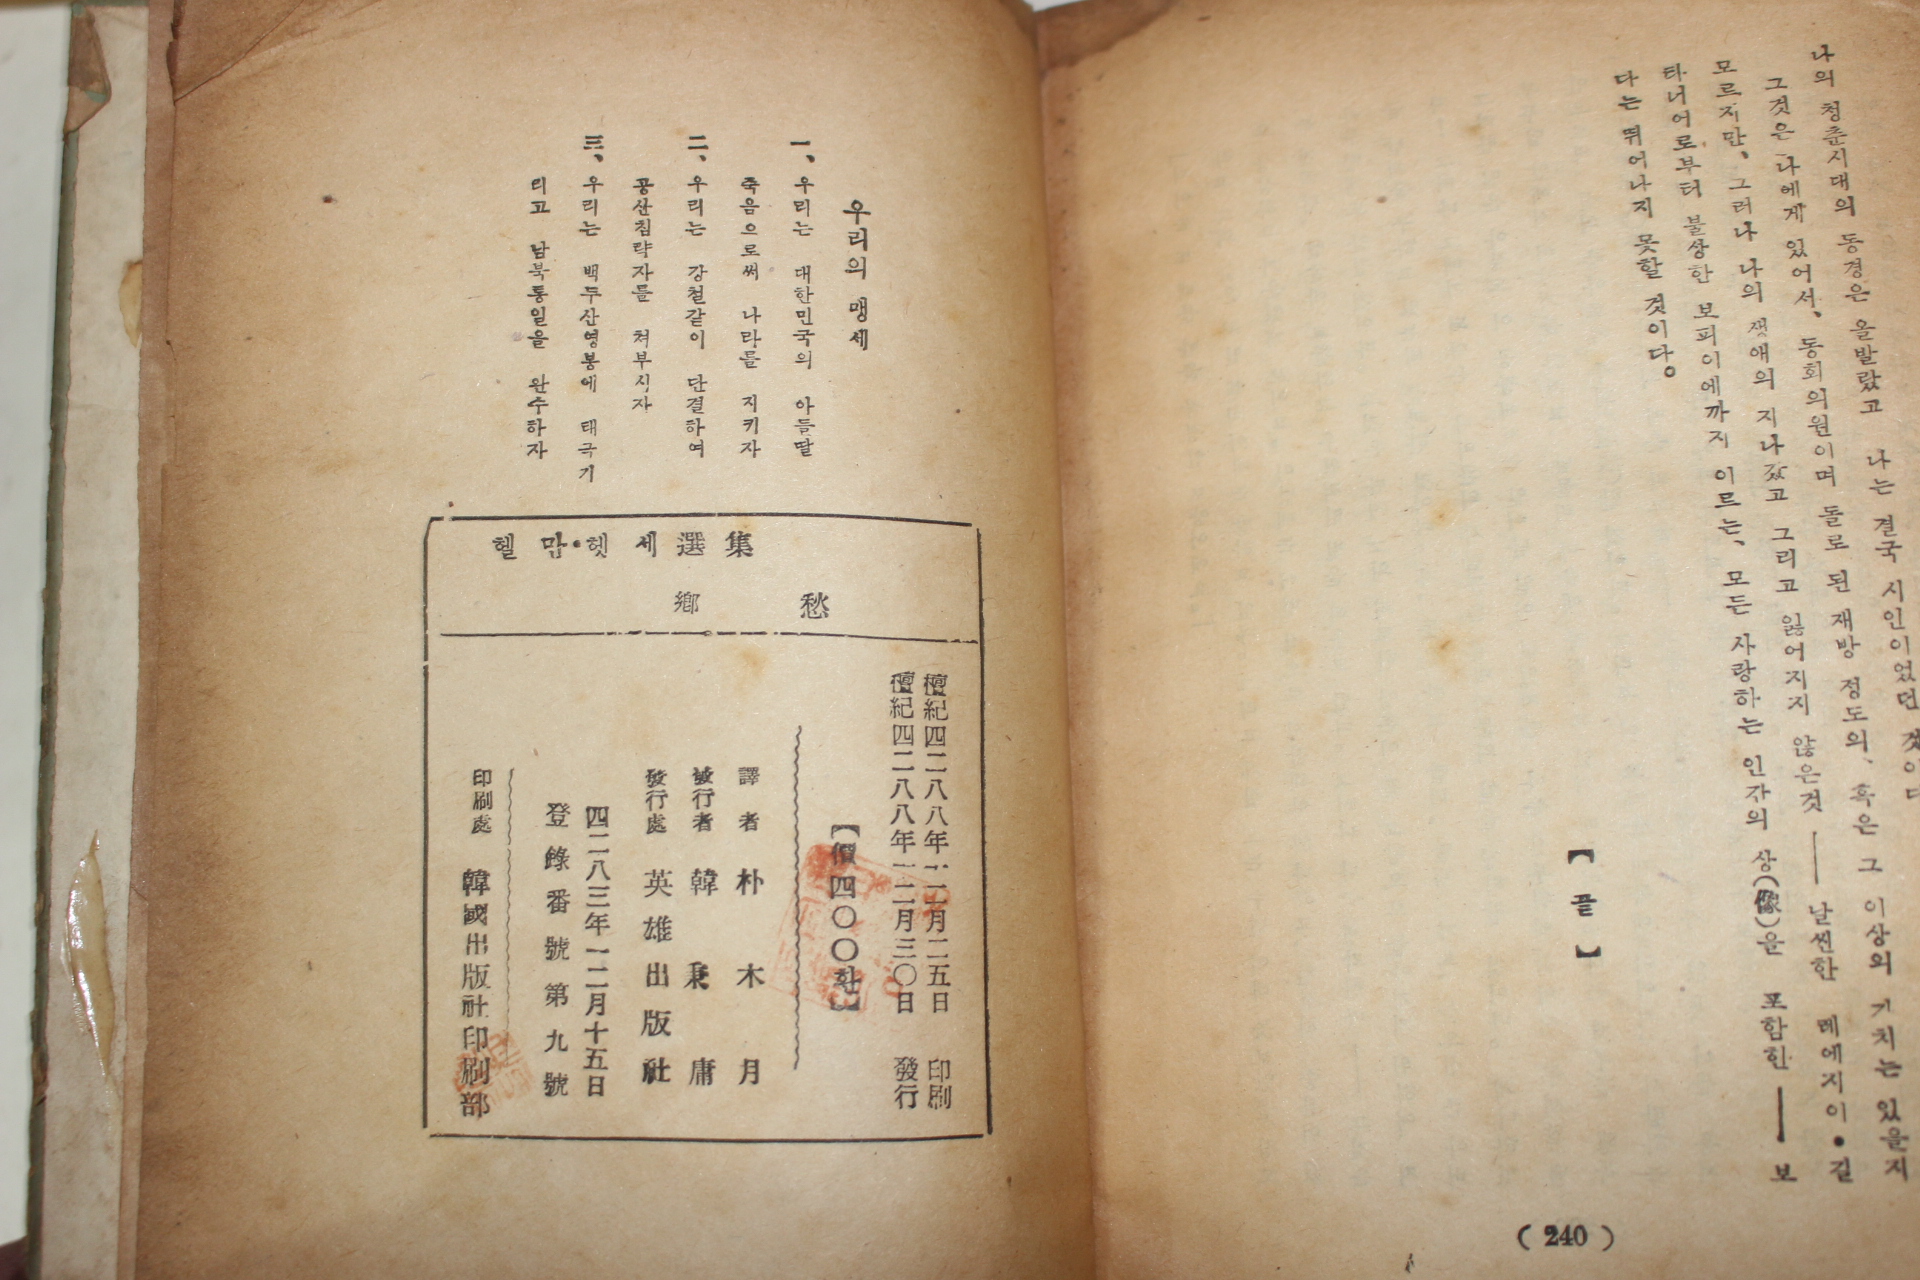 나의 청춘시대의 동경은 올발랐고 나는 결국 시인이었던 것이다
그것은 나에게 있어서、동회의원이며 돌로 된 재방 정도의、혹은 그 이상의 가치는 있을지
모르지만、그러나 나의 쟁애의 지나갔고 그리고 잃어지지 않은것 ── 날씬한 메에지이·길
타너어로부터 불상한 보피이에까지 이르는、모든 사랑하는 인간의 상(像)을 포함한 ── 보
다는 뛰어나지 못할 것이다。
【끝】
( 240 )
우리의 맹세
一、우리는 대한민국의 아들딸
죽음으로써 나라를 지키자
二、우리는 강철같이 단결하여
공산침략자를 쳐부시자
三、우리는 백두산영봉에 태극기
리고 남북통일을 완수하자
헬만·헷세選集
鄕愁
檀紀四二八八年一二月二五日 印刷
檀紀四二八八年一二月三〇日 發行
【價四〇〇환】
譯者 朴木月
發行者 韓秉庸
發行處 英雄出版社
四二八三年一二月十五日
登錄番號第九號
印刷處 韓國出版社印刷部